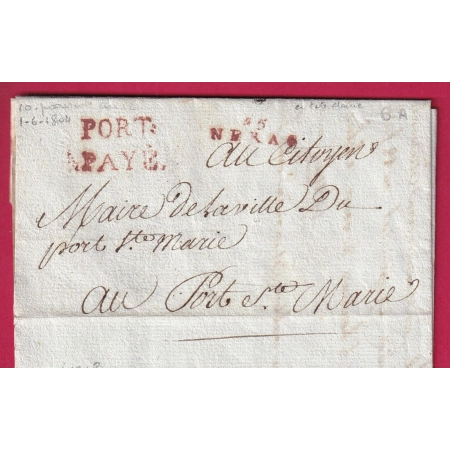 1-6-1804
en tête Mairie
PORT
PAYÉ.
NERAC
au Citoyen
Maire de la ville Du
port Ste Marie
au Port Ste Marie